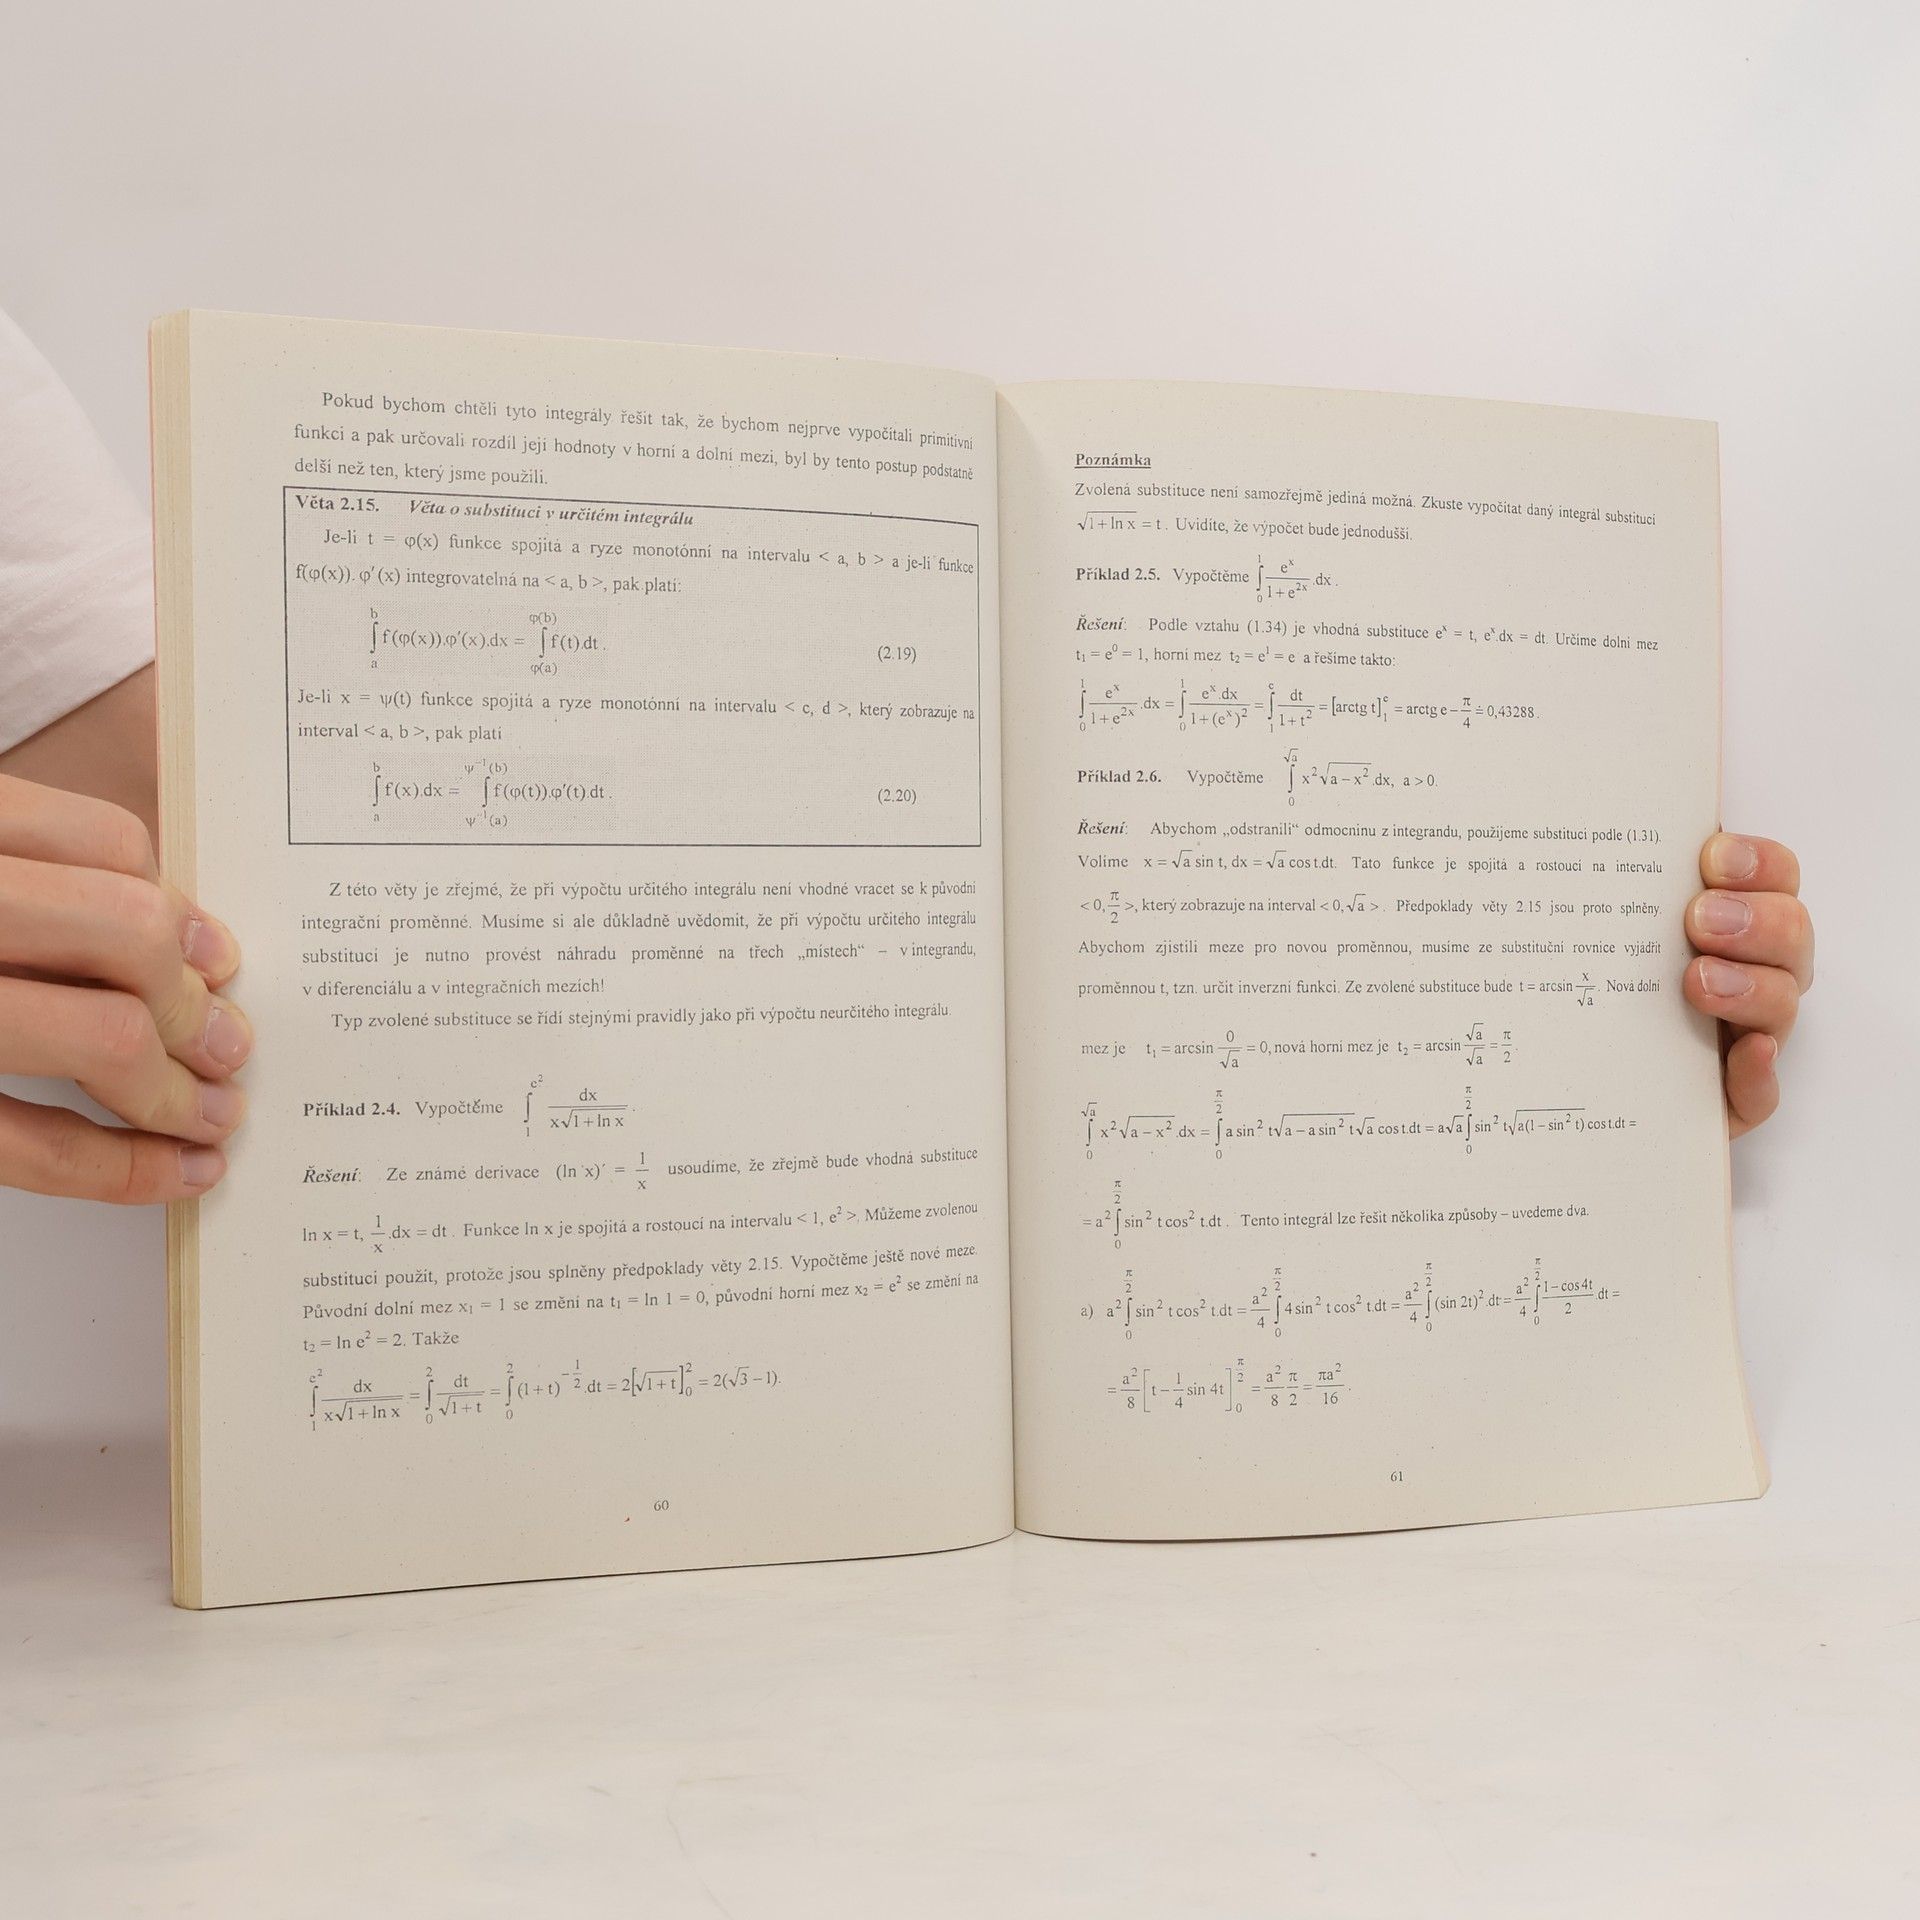 Pokud bychom chtěli tyto integrály řešit tak, že bychom nejprve vypočítali primitivní
funkci a pak určovali rozdíl její hodnoty v horní a dolní mezi, byl by tento postup podstatně
delší než ten, který jsme použili.
Věta 2.15. Věta o substituci v určitém integrálu
Je-li t = φ(x) funkce spojitá a ryze monotónní na intervalu < a, b > a je-li funkce
f(φ(x)). φ′(x) integrovatelná na < a, b >, pak platí:
∫_a^b f(φ(x)).φ′(x).dx = ∫_{φ(a)}^{φ(b)} f(t).dt . (2.19)
Je-li x = ψ(t) funkce spojitá a ryze monotónní na intervalu < c, d >, který zobrazuje na
interval < a, b >, pak platí
∫_a^b f(x).dx = ∫_{ψ⁻¹(a)}^{ψ⁻¹(b)} f(φ(t)).φ′(t).dt . (2.20)
Z této věty je zřejmé, že při výpočtu určitého integrálu není vhodné vracet se k původní
integrační proměnné. Musíme si ale důkladně uvědomit, že při výpočtu určitého integrálu
substitucí je nutno provést náhradu proměnné na třech „místech“ – v integrandu,
v diferenciálu a v integračních mezích!
Typ zvolené substituce se řídí stejnými pravidly jako při výpočtu neurčitého integrálu.
Příklad 2.4. Vypočtěme ∫_1^{e²} dx/(x√(1+ln x)) .
Řešení: Ze známé derivace (ln x)′ = 1/x usoudíme, že zřejmě bude vhodná substituce
ln x = t, 1/x .dx = dt . Funkce ln x je spojitá a rostoucí na intervalu < 1, e² >. Můžeme zvolenou
substituci použít, protože jsou splněny předpoklady věty 2.15. Vypočtěme ještě nové meze.
Původní dolní mez x₁ = 1 se změní na t₁ = ln 1 = 0, původní horní mez x₂ = e² se změní na
t₂ = ln e² = 2. Takže
∫_1^{e²} dx/(x√(1+ln x)) = ∫_0^2 dt/√(1+t) = ∫_0^2 (1+t)^{-1/2}.dt = 2[√(1+t)]_0^2 = 2(√3 – 1).
60
Poznámka
Zvolená substituce není samozřejmě jediná možná. Zkuste vypočítat daný integrál substitucí
√(1+ln x) = t . Uvidíte, že výpočet bude jednodušší.
Příklad 2.5. Vypočtěme ∫_0^1 e^x/(1+e^{2x}) .dx .
Řešení: Podle vztahu (1.34) je vhodná substituce e^x = t, e^x.dx = dt. Určíme dolní mez
t₁ = e⁰ = 1, horní mez t₂ = e¹ = e a řešíme takto:
∫_0^1 e^x/(1+e^{2x}) .dx = ∫_0^1 e^x.dx/(1+(e^x)²) = ∫_1^e dt/(1+t²) = [arctg t]_1^e = arctg e – π/4 ≐ 0,43288 .
Příklad 2.6. Vypočtěme ∫_0^{√a} x²√(a – x²) .dx, a > 0.
Řešení: Abychom „odstranili“ odmocninu z integrandu, použijeme substituci podle (1.31).
Volíme x = √a sin t, dx = √a cos t.dt. Tato funkce je spojitá a rostoucí na intervalu
< 0, π/2 >, který zobrazuje na interval < 0, √a > . Předpoklady věty 2.15 jsou proto splněny.
Abychom zjistili meze pro novou proměnnou, musíme ze substituční rovnice vyjádřit
proměnnou t, tzn. určit inverzní funkci. Ze zvolené substituce bude t = arcsin x/√a . Nová dolní
mez je t₁ = arcsin 0/√a = 0, nová horní mez je t₂ = arcsin √a/√a = π/2 .
∫_0^{√a} x²√(a – x²) .dx = ∫_0^{π/2} a sin² t√(a – a sin² t)√a cos t.dt = a√a ∫_0^{π/2} sin² t√(a(1 – sin² t)) cos t.dt =
= a² ∫_0^{π/2} sin² t cos² t.dt . Tento integrál lze řešit několika způsoby – uvedeme dva.
a) a² ∫_0^{π/2} sin² t cos² t.dt = a²/4 ∫_0^{π/2} 4 sin² t cos² t.dt = a²/4 ∫_0^{π/2} (sin 2t)².dt = a²/4 ∫_0^{π/2} (1 – cos 4t)/2 .dt =
= a²/8 [t – 1/4 sin 4t]_0^{π/2} = a²/8 π/2 = πa²/16 .
61